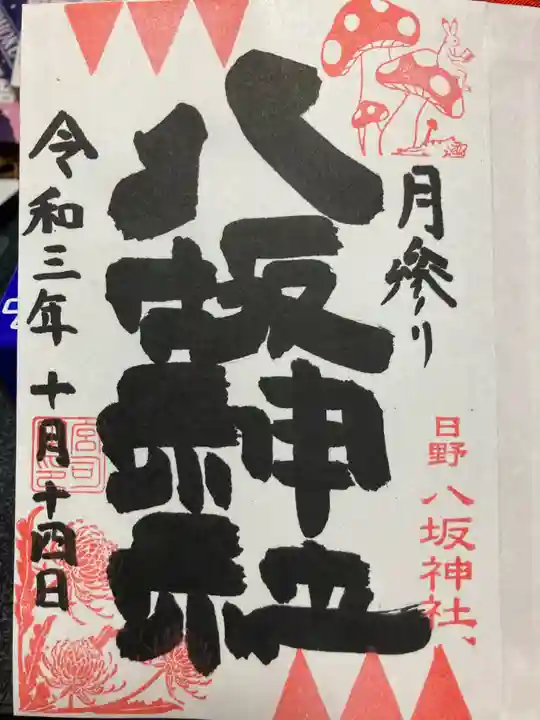 月参り
日野 八坂神社、
八坂神社
令和三年 十月十四日
宮司